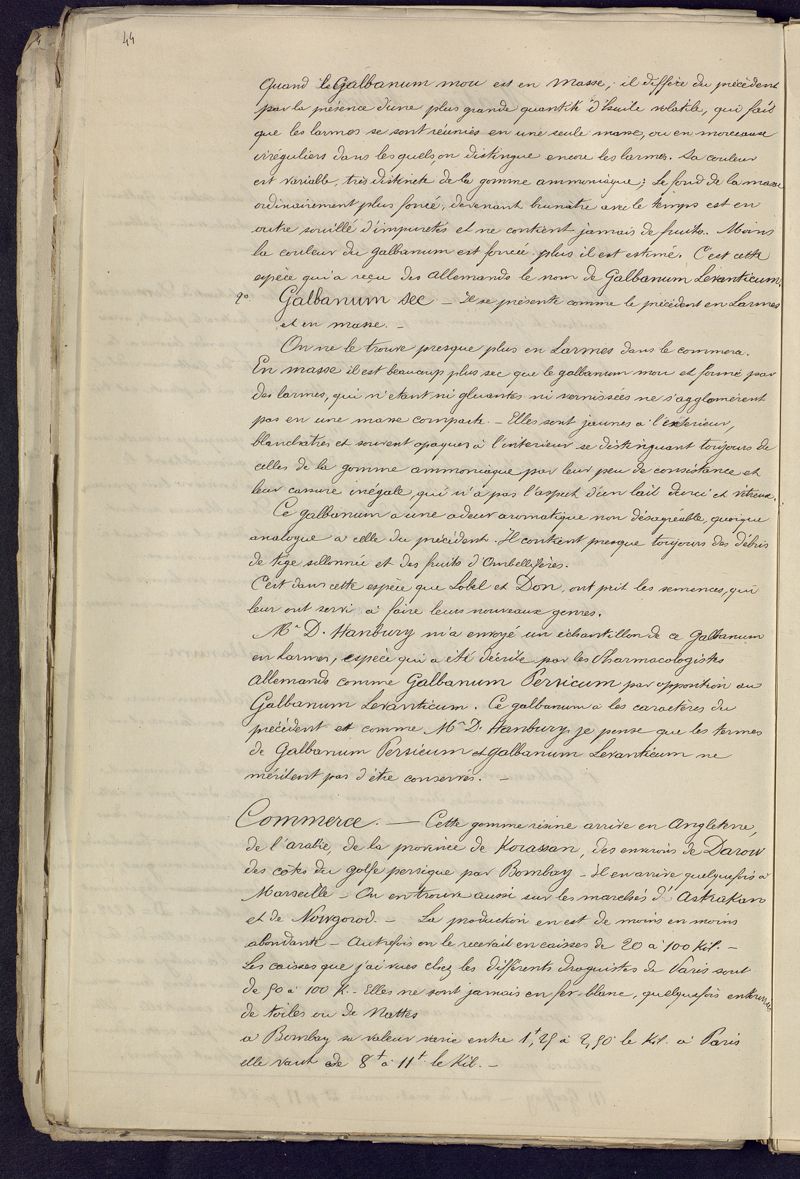 44
Quand le Galbanum mou est en masse, il diffère du précédent
par la présence d'une plus grande quantité d'huile volatile, qui fait
que les larmes se sont réunies en une seule masse, ou en morceaux
irréguliers dans lesquels on distingue encore les larmes. Sa couleur
est variable, très distincte de la gomme ammoniaque; le fond de la masse
ordinairement plus foncé, devenant brunâtre avec le temps est en
outre souillé d'impuretés et ne contient jamais de fruits. Moins
la couleur du galbanum est foncée plus il est estimé. C'est cette
espèce qui a reçu des Allemands le nom de Galbanum Levanticum.
2° Galbanum sec — Il se présente comme le précédent en Larmes
et en masse. —
On ne le trouve presque plus en Larmes dans le commerce.
En masse il est beaucoup plus sec que le galbanum mou et formé par
des larmes, qui n'étant ni gluantes ni vernissées ne s'agglomèrent
pas en une masse compacte. — Elles sont jaunes à l'extérieur,
blanchâtres et souvent opaques à l'intérieur se distinguant toujours de
celles de la gomme ammoniaque par leur peu de consistance et
leur cassure inégale, qui n'a pas l'aspect d'un lait durci et vitreux.
Ce galbanum a une odeur aromatique non désagréable, quoique
analogue à celle du précédent. Il contient presque toujours des débris
de tige sillonnée et des fruits d'Ombellifères.
C'est dans cette espèce que Lobel et Don, ont prit les semences, qui
leur ont servi à faire leurs nouveaux genres.
Mr D. Hanbury m'a envoyé un échantillon de ce Galbanum
en Larmes, espèce qui a été décrite par les Pharmacologistes
Allemands comme Galbanum Persicum par opposition au
Galbanum Levanticum. Ce galbanum a les caractères du
précédent et comme Mr D. Hanbury, je pense que les termes
de Galbanum Persicum et galbanum Levanticum ne
méritent pas d'être conservés. —
Commerce. — Cette gomme résine arrive en Angleterre,
de l'arabie, de la province de Korassan, des environs de Darou
des côtes du golfe persique par Bombay — Il en arrive quelquefois à
Marseille — On en trouve aussi sur les marchés d'Astrakan
et de Nowgorod. — La production en est de moins en moins
abondante — Autrefois on le recevait en caisses de 20 à 100 Kil. —
Les caisses que j'ai vues chez les différents droguistes de Paris sont
de 50 à 100 K. — Elles ne sont jamais en fer blanc, quelquefois entourées
de toiles ou de Nattes
a Bombay sa valeur varie entre 1f,25 à 2,50 le Kil. à Paris
elle vaut de 8f à 11f le Kil. —